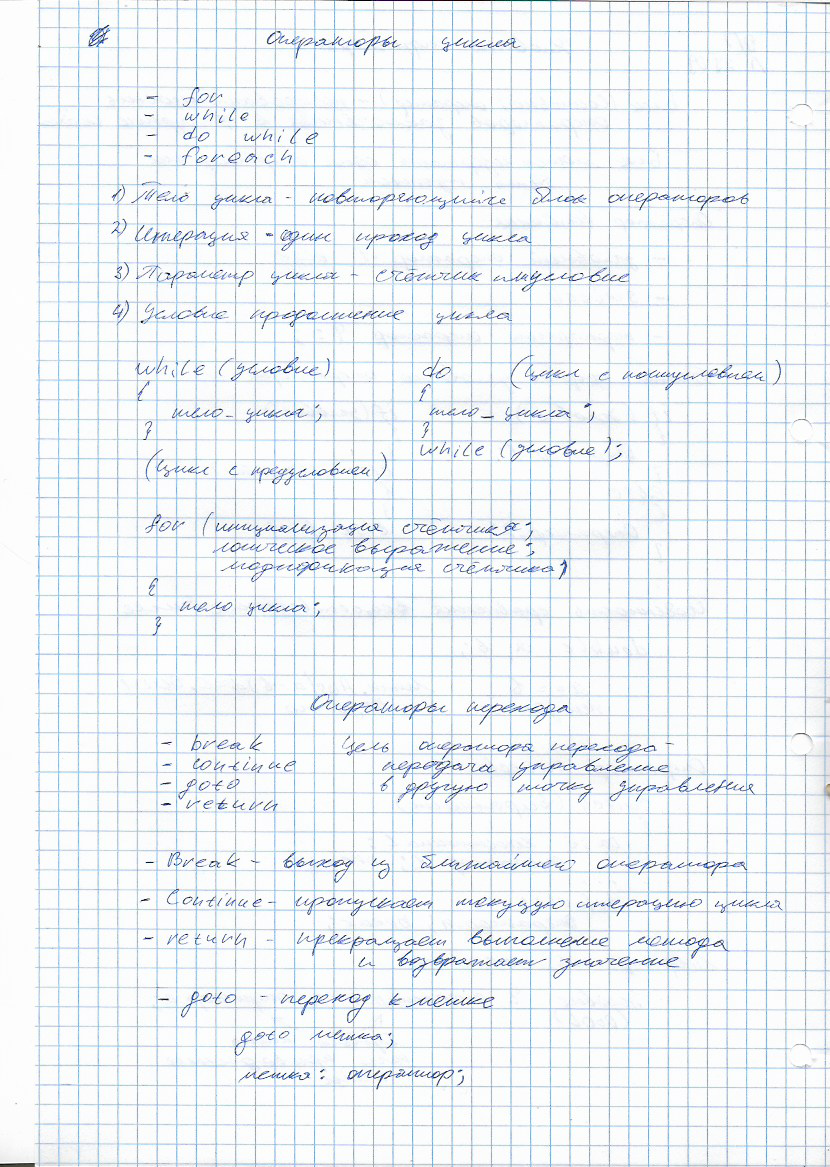 Операторы цикла
- for
- while
- do while
- foreach
1) Тело цикла - повторяющийся блок операторов
2) Итерация - один проход цикла
3) Параметр цикла - счётчик условие
4) Условие продолжение цикла
while (условие)
{
тело_цикла;
}
(цикл с предусловием)
do (цикл с постусловием)
{
тело_цикла;
}
while (условие);
for (инициализация счётчика;
логическое выражение;
модификация счётчика)
{
тело цикла;
}
Операторы перехода
- break
- continue
- goto
- return
Цель оператора перехода -
передача управление
в другую точку управления
- Break - выход из ближайшего оператора
- Continue - пропускает текущую итерацию цикла
- return - прекращает выполнение метода
и возвращает значение
- goto - переход к метке
goto метка;
метка: оператор;